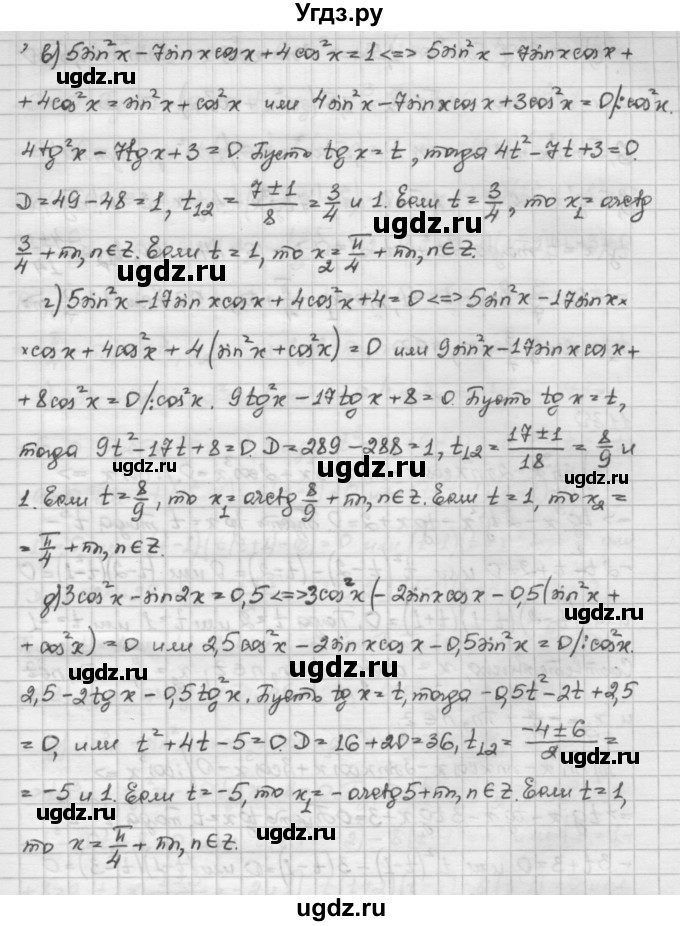 Угдз.ру
в) 5sin²x − 7sin x cos x + 4cos²x = 1 <=> 5sin²x − 7sin x cos x +
+ 4cos²x = sin²x + cos²x или 4sin²x − 7sin x cos x + 3cos²x = 0 /: cos²x.
4tg²x − 7tg x + 3 = 0. Пусть tg x = t, тогда 4t² − 7t + 3 = 0.
D = 49 − 48 = 1, t₁₂ = (7 ± 1)/8 = 3/4 и 1. Если t = 3/4, то x₁ = arctg
3/4 + πn, n∈Z. Если t = 1, то x₂ = π/4 + πn, n∈Z.
г) 5sin²x − 17sin x cos x + 4cos²x + 4 = 0 <=> 5sin²x − 17sin x ×
× cos x + 4cos²x + 4(sin²x + cos²x) = 0 или 9sin²x − 17sin x cos x +
+ 8cos²x = 0 /: cos²x. 9tg²x − 17tg x + 8 = 0. Пусть tg x = t,
тогда 9t² − 17t + 8 = 0. D = 289 − 288 = 1, t₁₂ = (17 ± 1)/18 = 8/9 и
1. Если t = 8/9, то x₁ = arctg 8/9 + πn, n∈Z. Если t = 1, то x₂ =
= π/4 + πn, n∈Z.
д) 3cos²x − sin2x = 0,5 <=> 3cos²x (− 2sin x cos x − 0,5(sin²x +
+ cos²x) = 0 или 2,5cos²x − 2sin x cos x − 0,5sin²x = 0 /: cos²x.
2,5 − 2tg x − 0,5tg²x. Пусть tg x = t, тогда −0,5t² − 2t + 2,5
= 0, или t² + 4t − 5 = 0. D = 16 + 20 = 36, t₁₂ = (−4 ± 6)/2 =
= −5 и 1. Если t = −5, то x₁ = − arctg 5 + πn, n∈Z. Если t = 1,
то x = π/4 + πn, n∈Z.
ugdz.ru
ugdz.ru
ugdz.ru
ugdz.ru
ugdz.ru
ugdz.ru
ugdz.ru
ugdz.ru
ugdz.ru
ugdz.ru
ugdz.ru
ugdz.ru
ugdz.ru
ugdz.ru